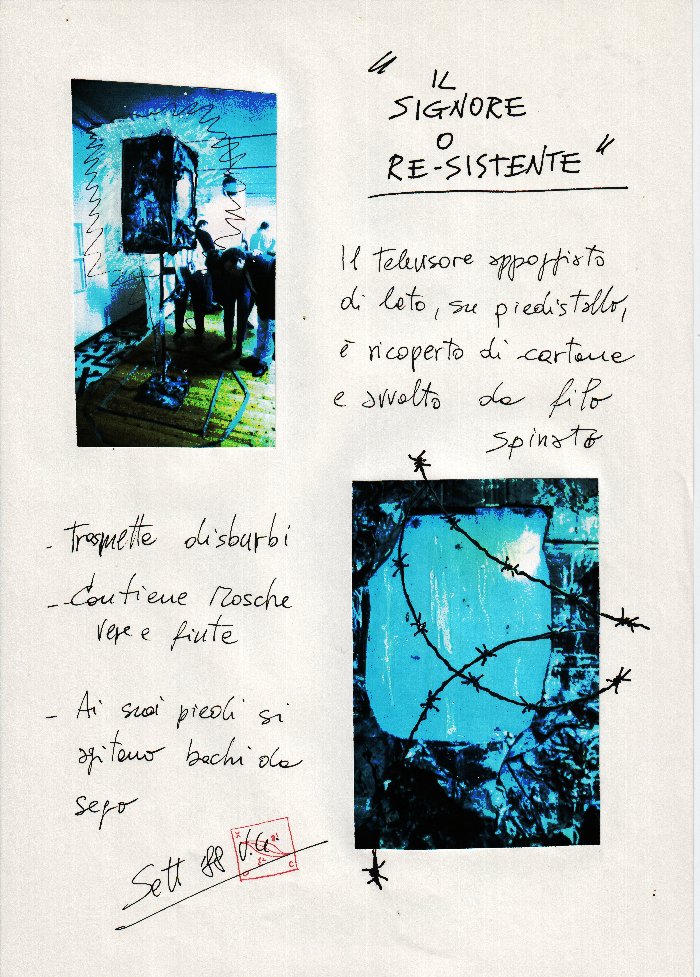 "IL
SIGNORE
O
RE-SISTENTE"
Il televisore appoggiato
di lato, su piedistallo,
è ricoperto di cartone
e avvolto da filo
spinato
- Trasmette disturbi
- Contiene Mosche
vere e finte
- Ai suoi piedi si
agitano bachi da
sego
Sett 88 V.G